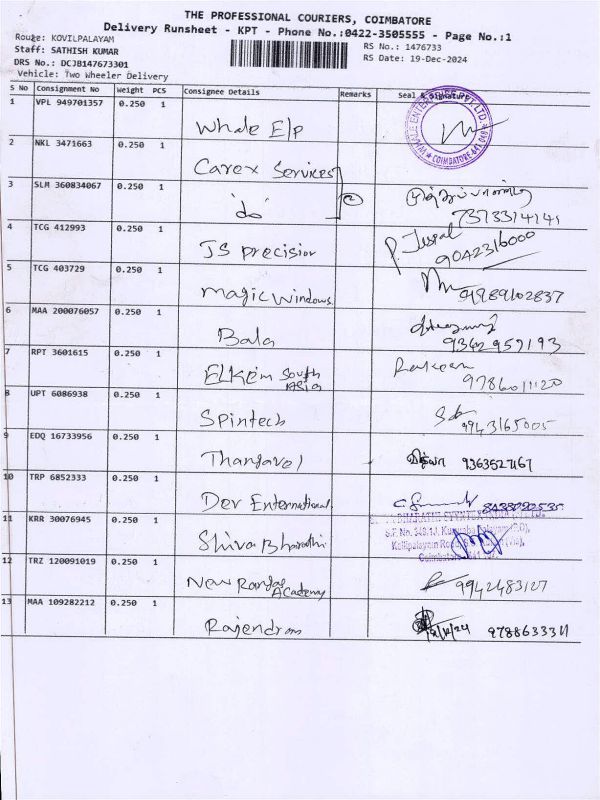 THE PROFESSIONAL COURIERS, COIMBATORE
Delivery Runsheet - KPT - Phone No.:0422-3505555 - Page No.:1
Route: KOVILPALAYAM
Staff: SATHISH KUMAR
RS No.: 1476733
DRS No.: DCJB147673301
RS Date: 19-Dec-2024
Vehicle: Two Wheeler Delivery
S No Consignment No Weight PCS Consignee Details Remarks Seal & Signature
1 VPL 949701357 0.250 1
Whale E/p
COIMBATORE
2 NKL 3471663 0.250 1
Carex Services
3 SLM 360834067 0.250 1
'do' 2
7373314141
4 TCG 412993 0.250 1
JS precision P. Jespal 9042316000
5 TCG 403729 0.250 1
Magic windows 9489102837
6 MAA 200076057 0.250 1
Bala 9362959193
7 RPT 3601615 0.250 1
ELKEM South Asia
9786011120
8 UPT 6086938 0.250 1
Spintech 9943165005
9 EDQ 16733956 0.250 1
Thangavel 9363527167
10 TRP 6852333 0.250 1
Dev Enternational
11 KRR 30076945 0.250 1
Shiva Bharathi
12 TRZ 120091019 0.250 1
New Academy 9942483127
13 MAA 109282212 0.250 1
Rajendran